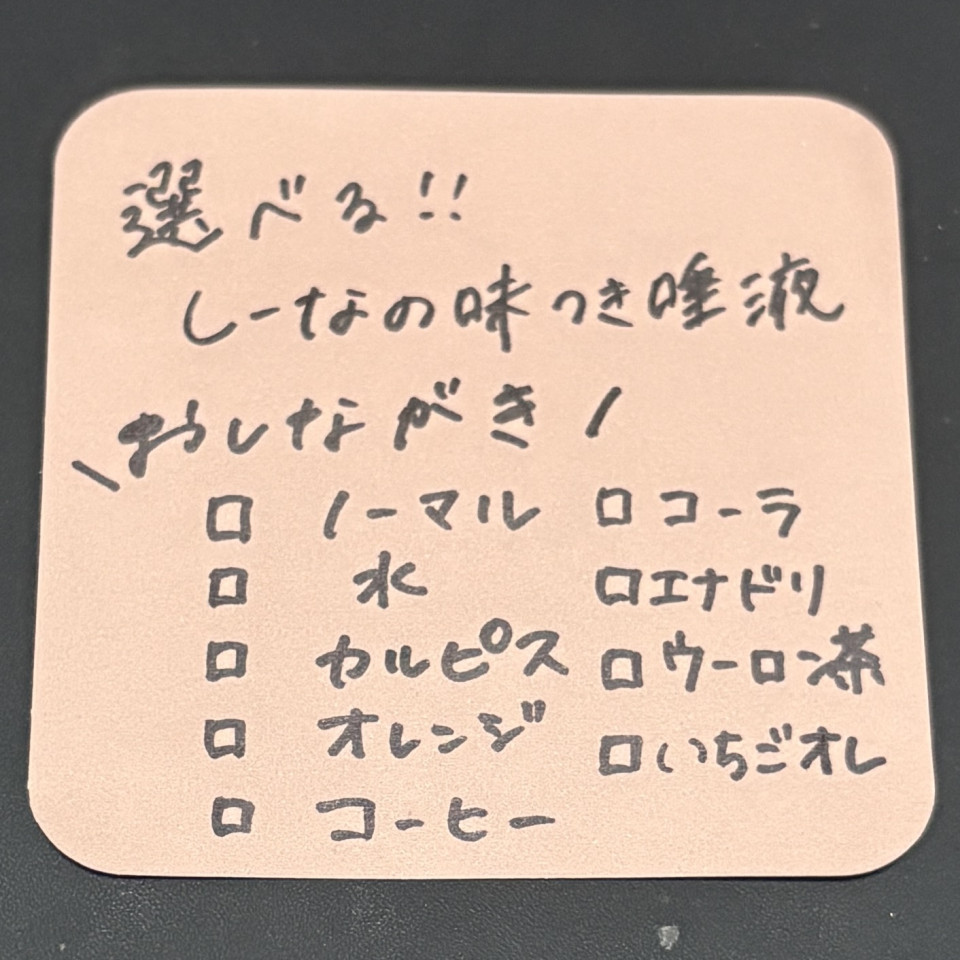 選べる!!
しーなの味つき唾液
\おしながき/
□ ノーマル □ コーラ
□ 水 □ エナドリ
□ カルピス □ ウーロン茶
□ オレンジ □ いちごオレ
□ コーヒー